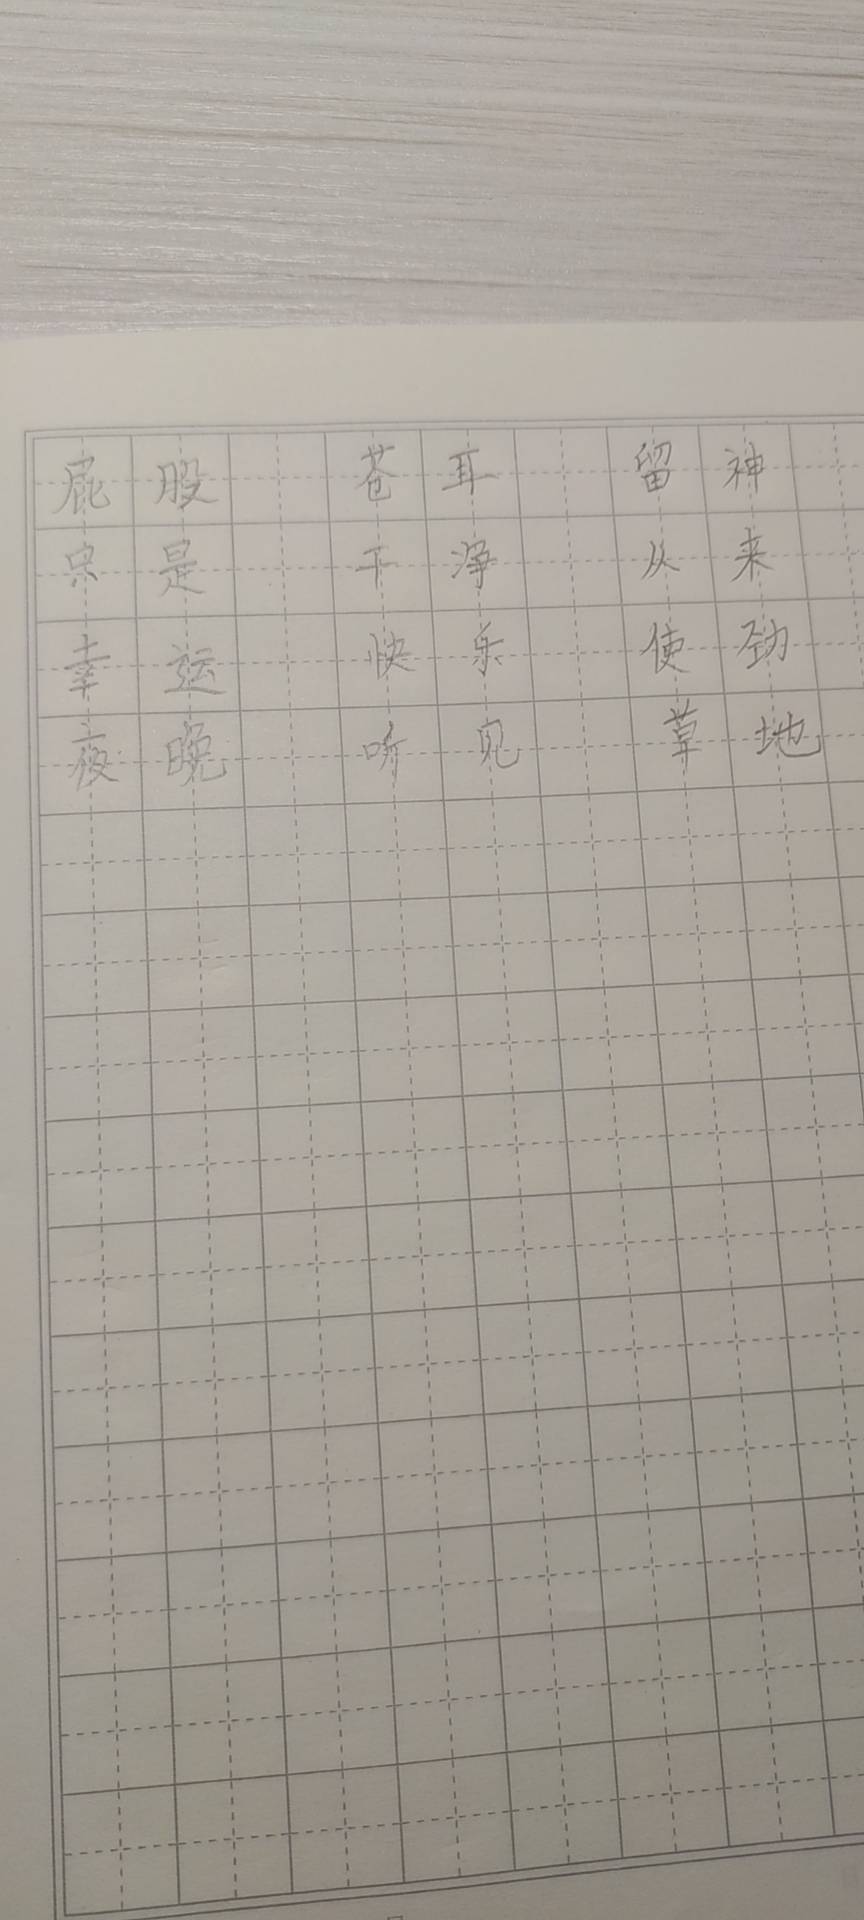 屁股 苍耳 留神
只是 干净 从来
幸运 快乐 使劲
夜晚 听见 草地